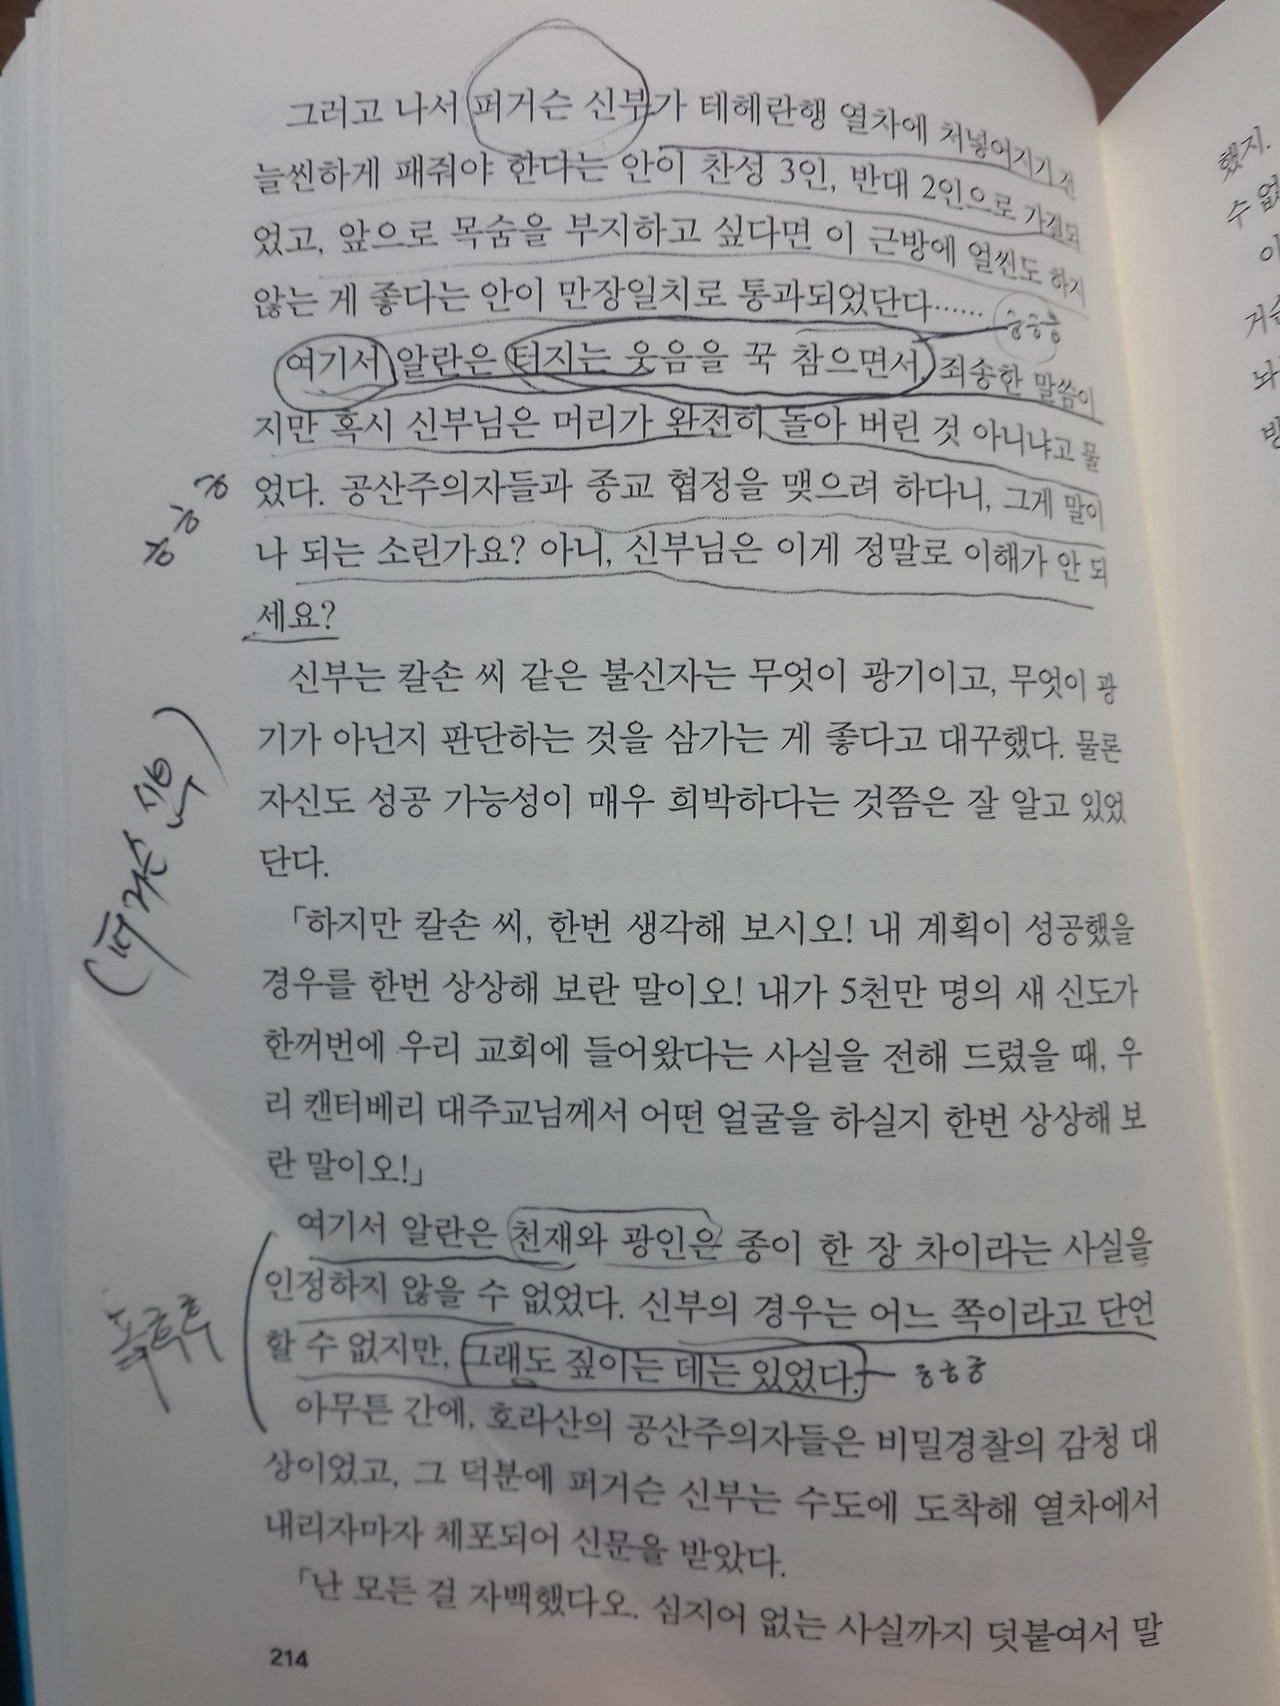 그러고 나서 퍼거슨 신부가 테헤란행 열차에 처넣어지기 전
늘씬하게 패줘야 한다는 안이 찬성 3인, 반대 2인으로 가결되
었고, 앞으로 목숨을 부지하고 싶다면 이 근방에 얼씬도 하지
않는 게 좋다는 안이 만장일치로 통과되었단다……
여기서 알란은 터지는 웃음을 꾹 참으면서, 죄송한 말씀이
지만 혹시 신부님은 머리가 완전히 돌아 버린 것 아니냐고 물
었다. 공산주의자들과 종교 협정을 맺으려 하다니, 그게 말이
나 되는 소린가요? 아니, 신부님은 이게 정말로 이해가 안 되
세요?
신부는 칼손 씨 같은 불신자는 무엇이 광기이고, 무엇이 광
기가 아닌지 판단하는 것을 삼가는 게 좋다고 대꾸했다. 물론
자신도 성공 가능성이 매우 희박하다는 것쯤은 잘 알고 있었
단다.
(퍼거슨 신부)
「하지만 칼손 씨, 한번 생각해 보시오! 내 계획이 성공했을
경우를 한번 상상해 보란 말이오! 내가 5천만 명의 새 신도가
한꺼번에 우리 교회에 들어왔다는 사실을 전해 드렸을 때, 우
리 캔터베리 대주교님께서 어떤 얼굴을 하실지 한번 상상해 보
란 말이오!」
여기서 알란은 천재와 광인은 종이 한 장 차이라는 사실을
인정하지 않을 수 없었다. 신부의 경우는 어느 쪽이라고 단언
할 수 없지만, 그래도 짚이는 데는 있었다.
아무튼 간에, 호라산의 공산주의자들은 비밀경찰의 감청 대
상이었고, 그 덕분에 퍼거슨 신부는 수도에 도착해 열차에서
내리자마자 체포되어 신문을 받았다.
「난 모든 걸 자백했다오. 심지어 없는 사실까지 덧붙여서 말
214
했지.
수 없